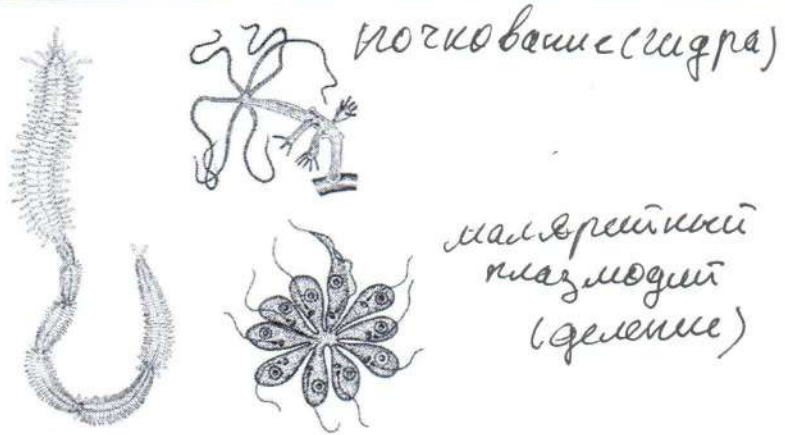 почкование (гидра)
малярийный
плазмодий
(деление)